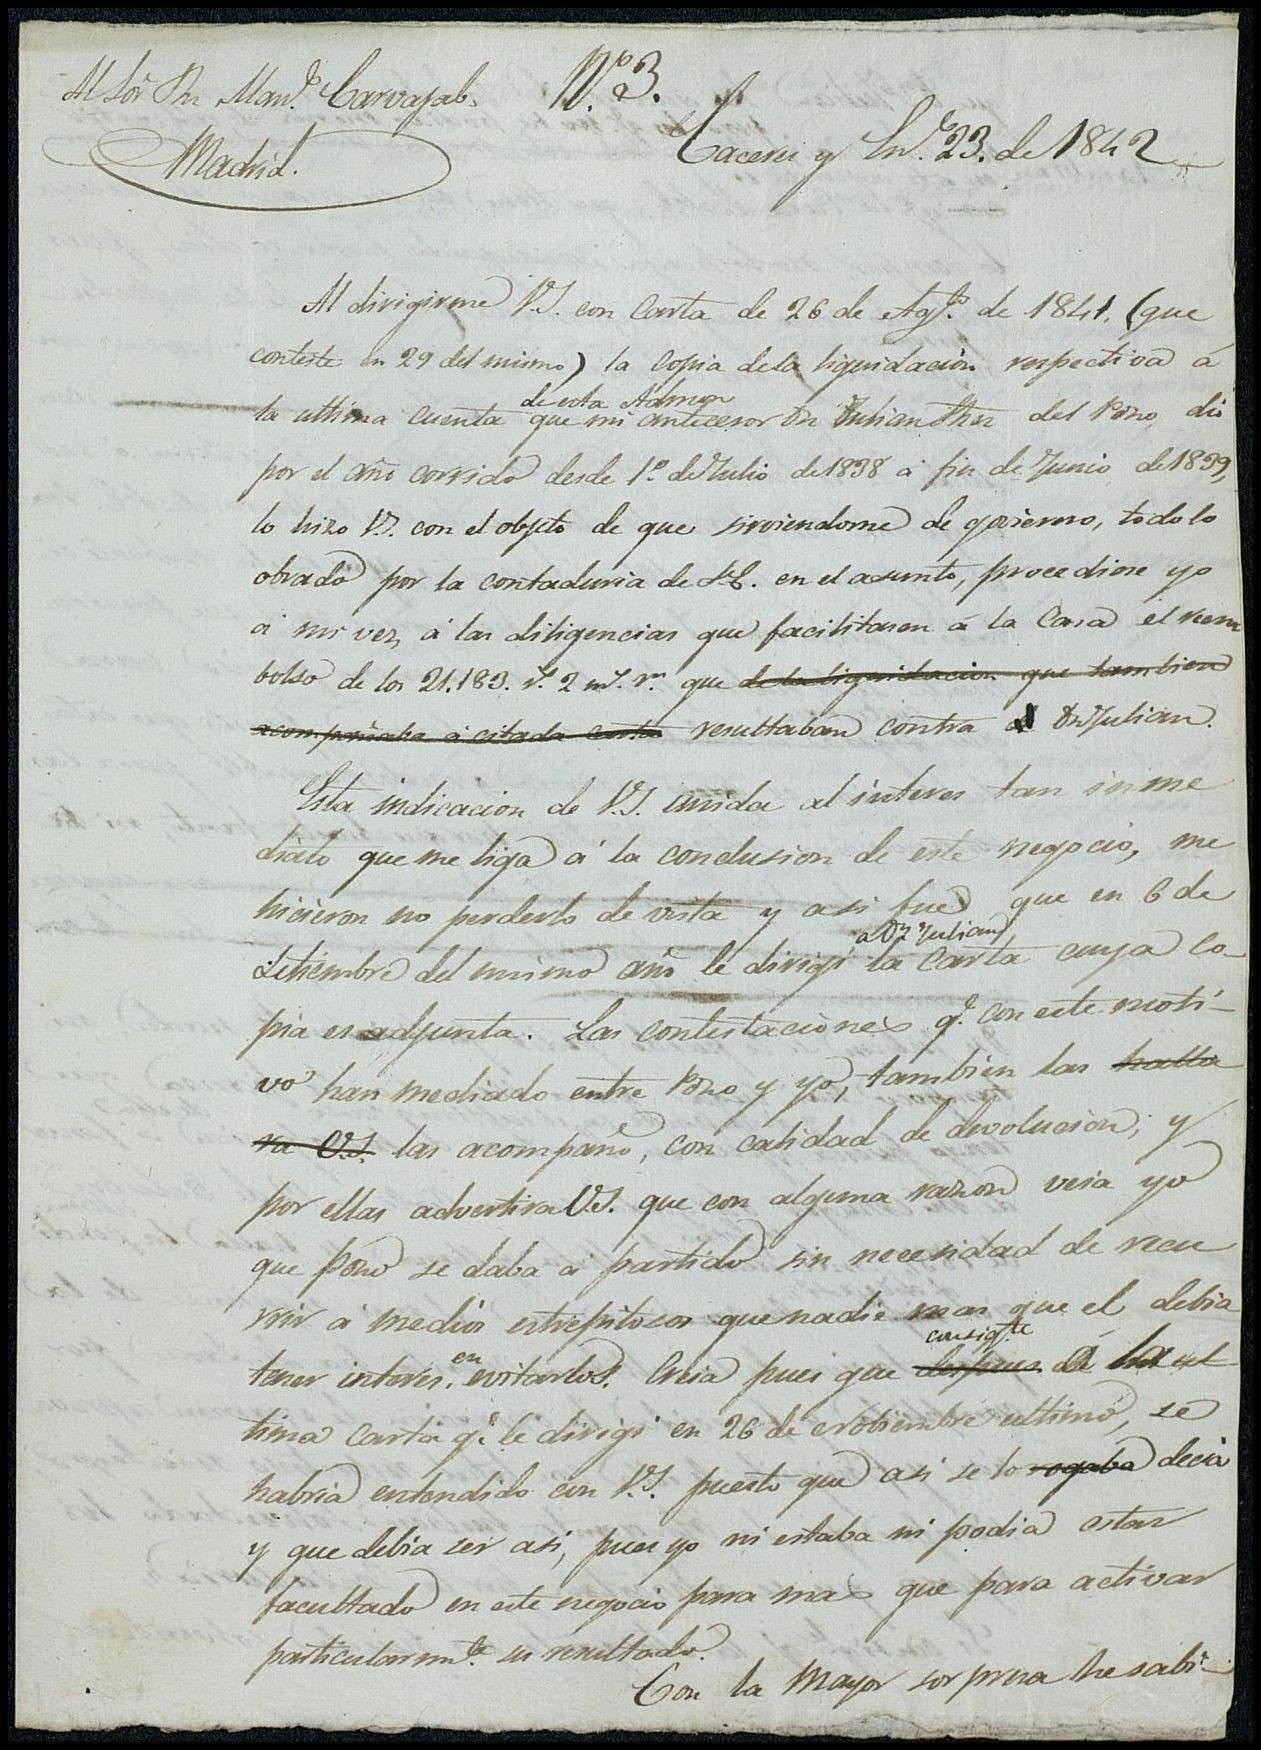 Al Sõr Dn Man.l Carvajal.
Madrid.
Nº 3.
Caceres y En.º 23. de 1842
Al dirigirme V.S. con carta de 26 de Ag.to de 1841. (que
contesté en 29 del mismo) la copia de la liquidacion respectiva á
de esta Admon
la ultima cuenta que mi antecesor Dn Julian del Pozo, dió
por el año corrido desde 1.º de Julio de 1838 á fin de Junio de 1839,
lo hizo V.S. con el objeto de que sirviendome de govierno, todo lo
obrado por la contaduria de S.E. en el asunto, procediese yo
á mi vez, á las diligencias que facilitasen á la Casa el reem
bolso de los 21.183. r.s 2 m.s v.n que de la liquidacion que tambien
acompañaba á citada carta resultaban contra el Dn Julian.
Esta indicacion de V.S. unida al interes tan inme
diato que me liga á la conclusion de este negocio, me
hicieron no perderlo de vista y asi fue que en 6 de
a Dn Julian
Setiembre del mismo año le dirigí la carta cuya co-
pia es adjunta. Las contestaciones q.e con este moti-
vo han mediado entre Pozo y yo, tambien las halla
ra V.S. las acompaño, con calidad de devolucion, y
por ellas advertira V.S. que con alguna razon veia yo
que Pozo se daba á partido sin necesidad de recu
rrir á medios estrepitosos que nadie mas que el debia
en
consig.te
tener interes. evitarlos. Creia pues que despues de á la ul
tima carta q.e le dirigí en 26 de Nobiembre ultimo, se
habria entendido con V.S. puesto que asi se lo rogaba decia
y que debia ser asi, pues yo ni estaba ni podia estar
facultado en este negocio para mas que para activar
particularm.te su resultado.
Con la mayor sorpresa he sabi-